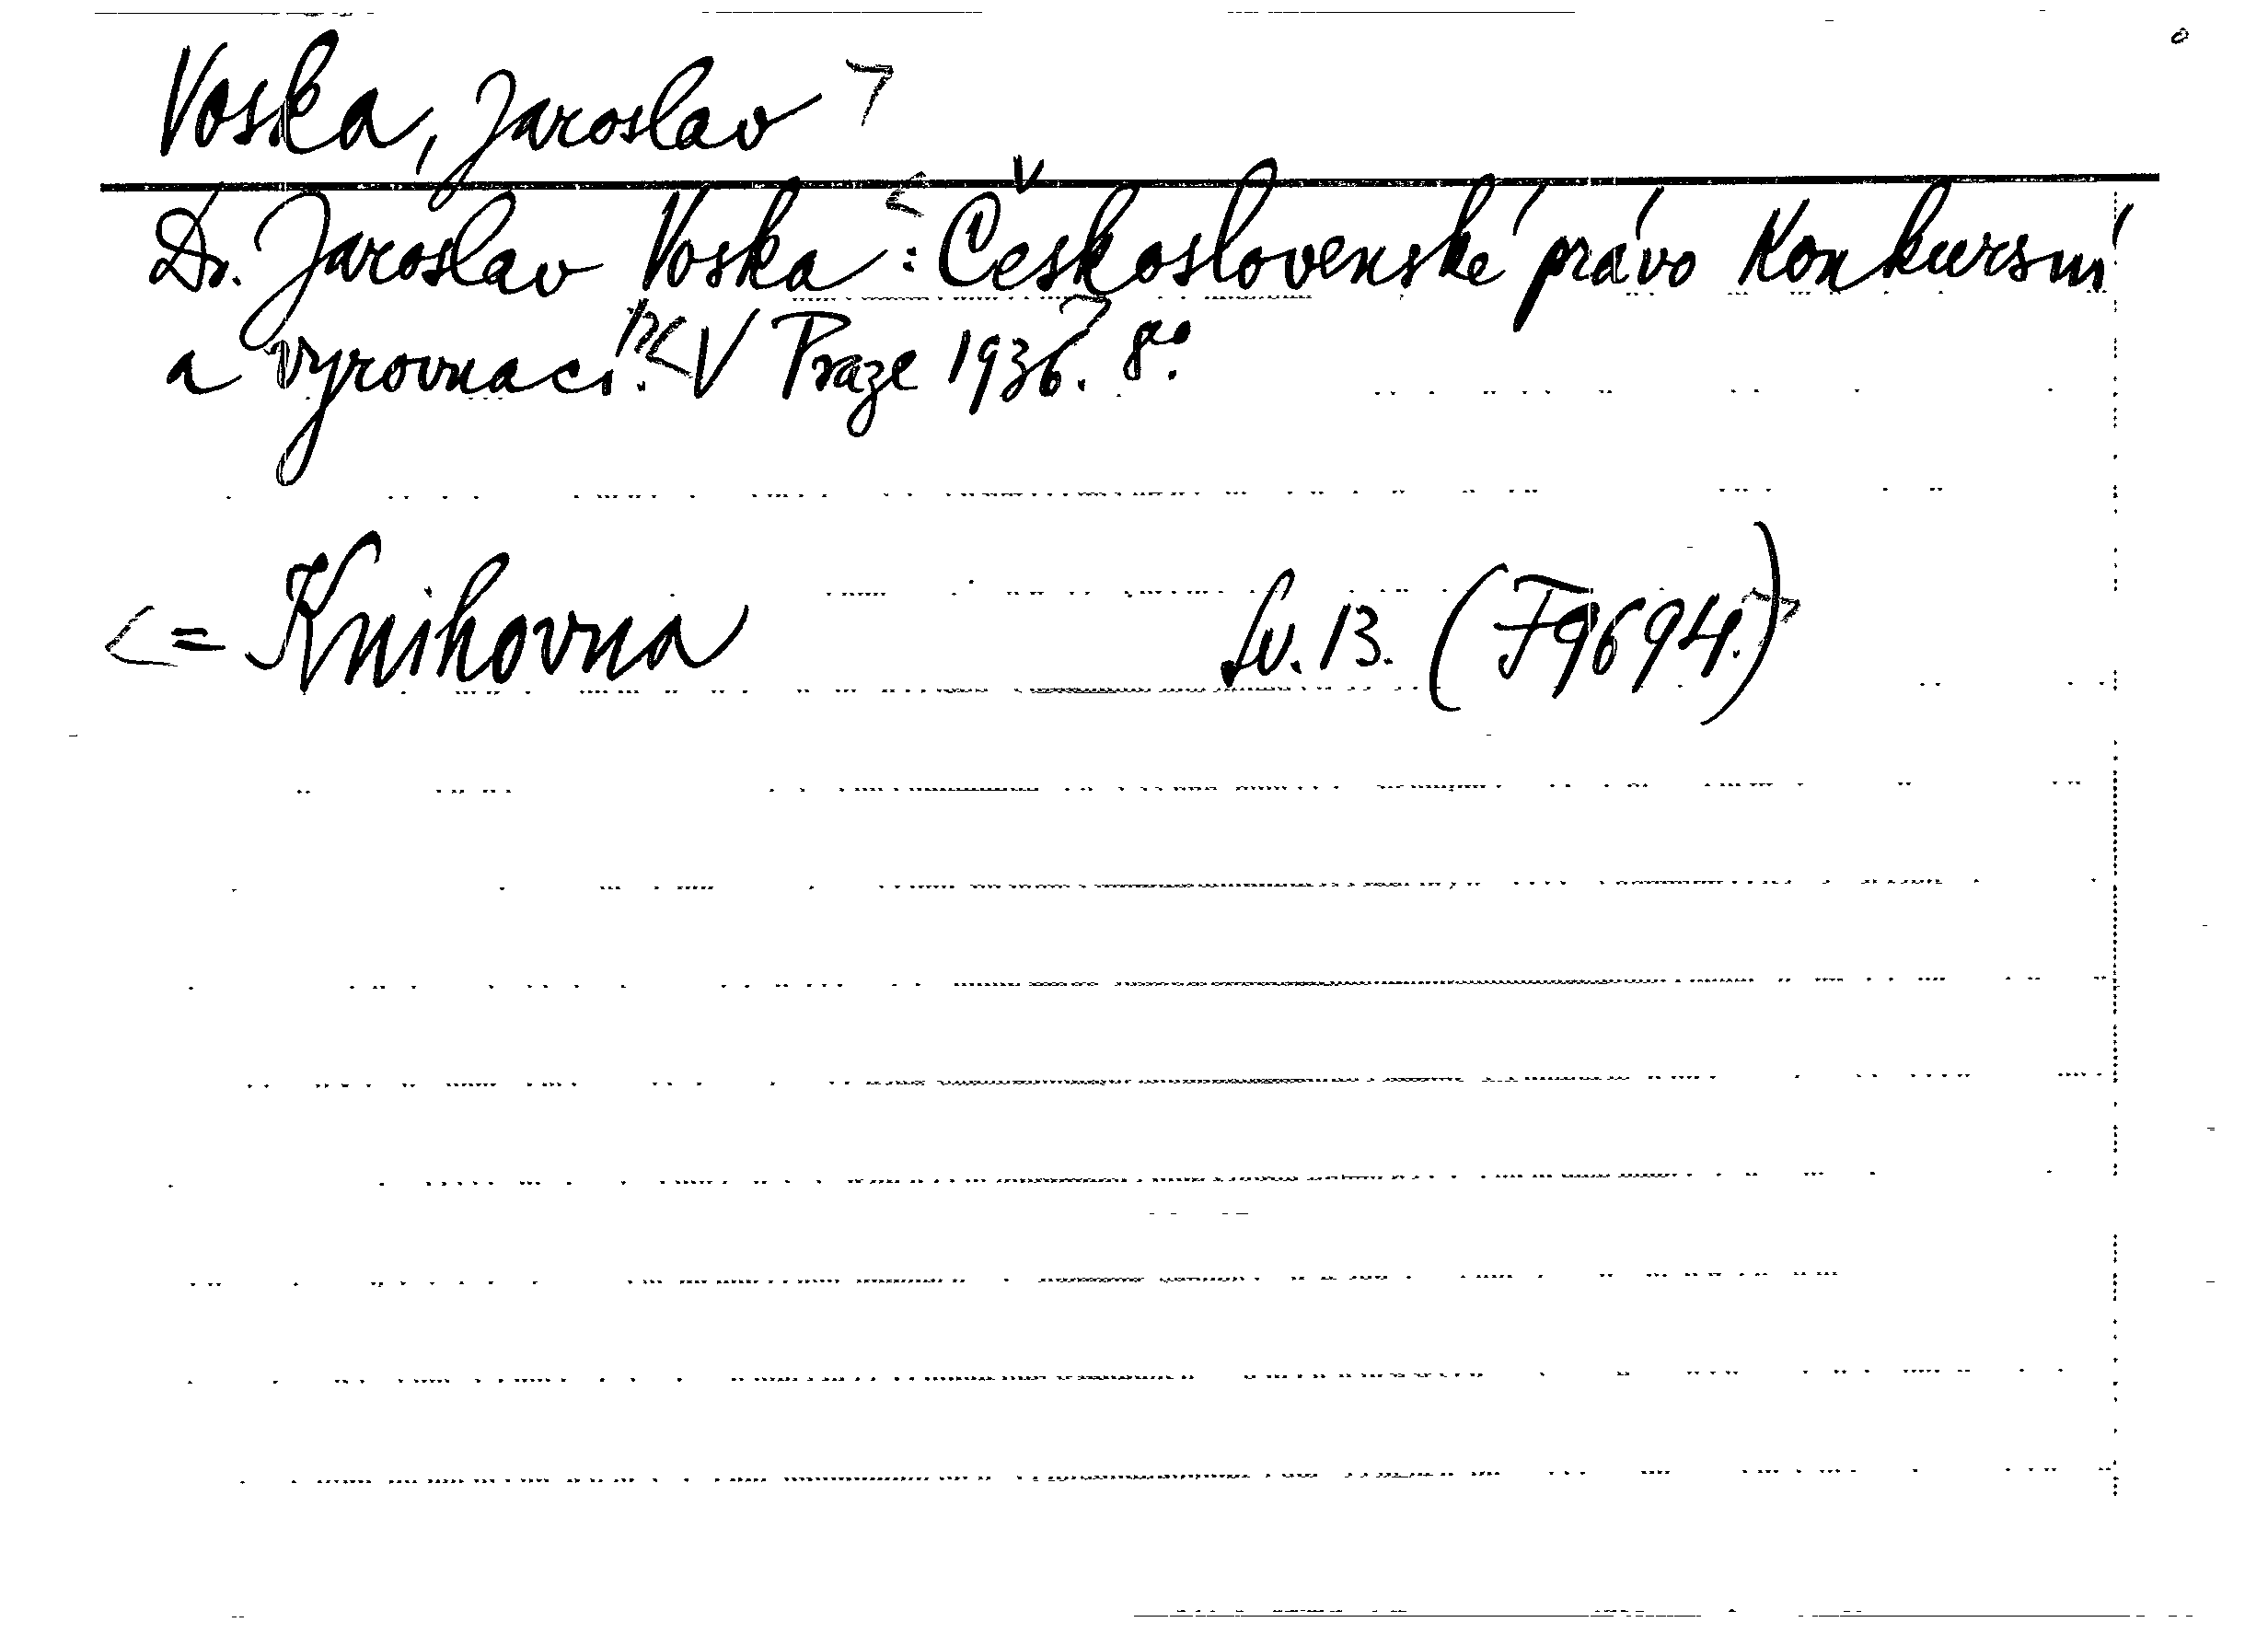 Voska, Jaroslav
Dr. Jaroslav Voska: Československé právo konkursní
a vyrovnací. V Praze 1936. 8°.
= Knihovna Sv. 13. (F9694.)